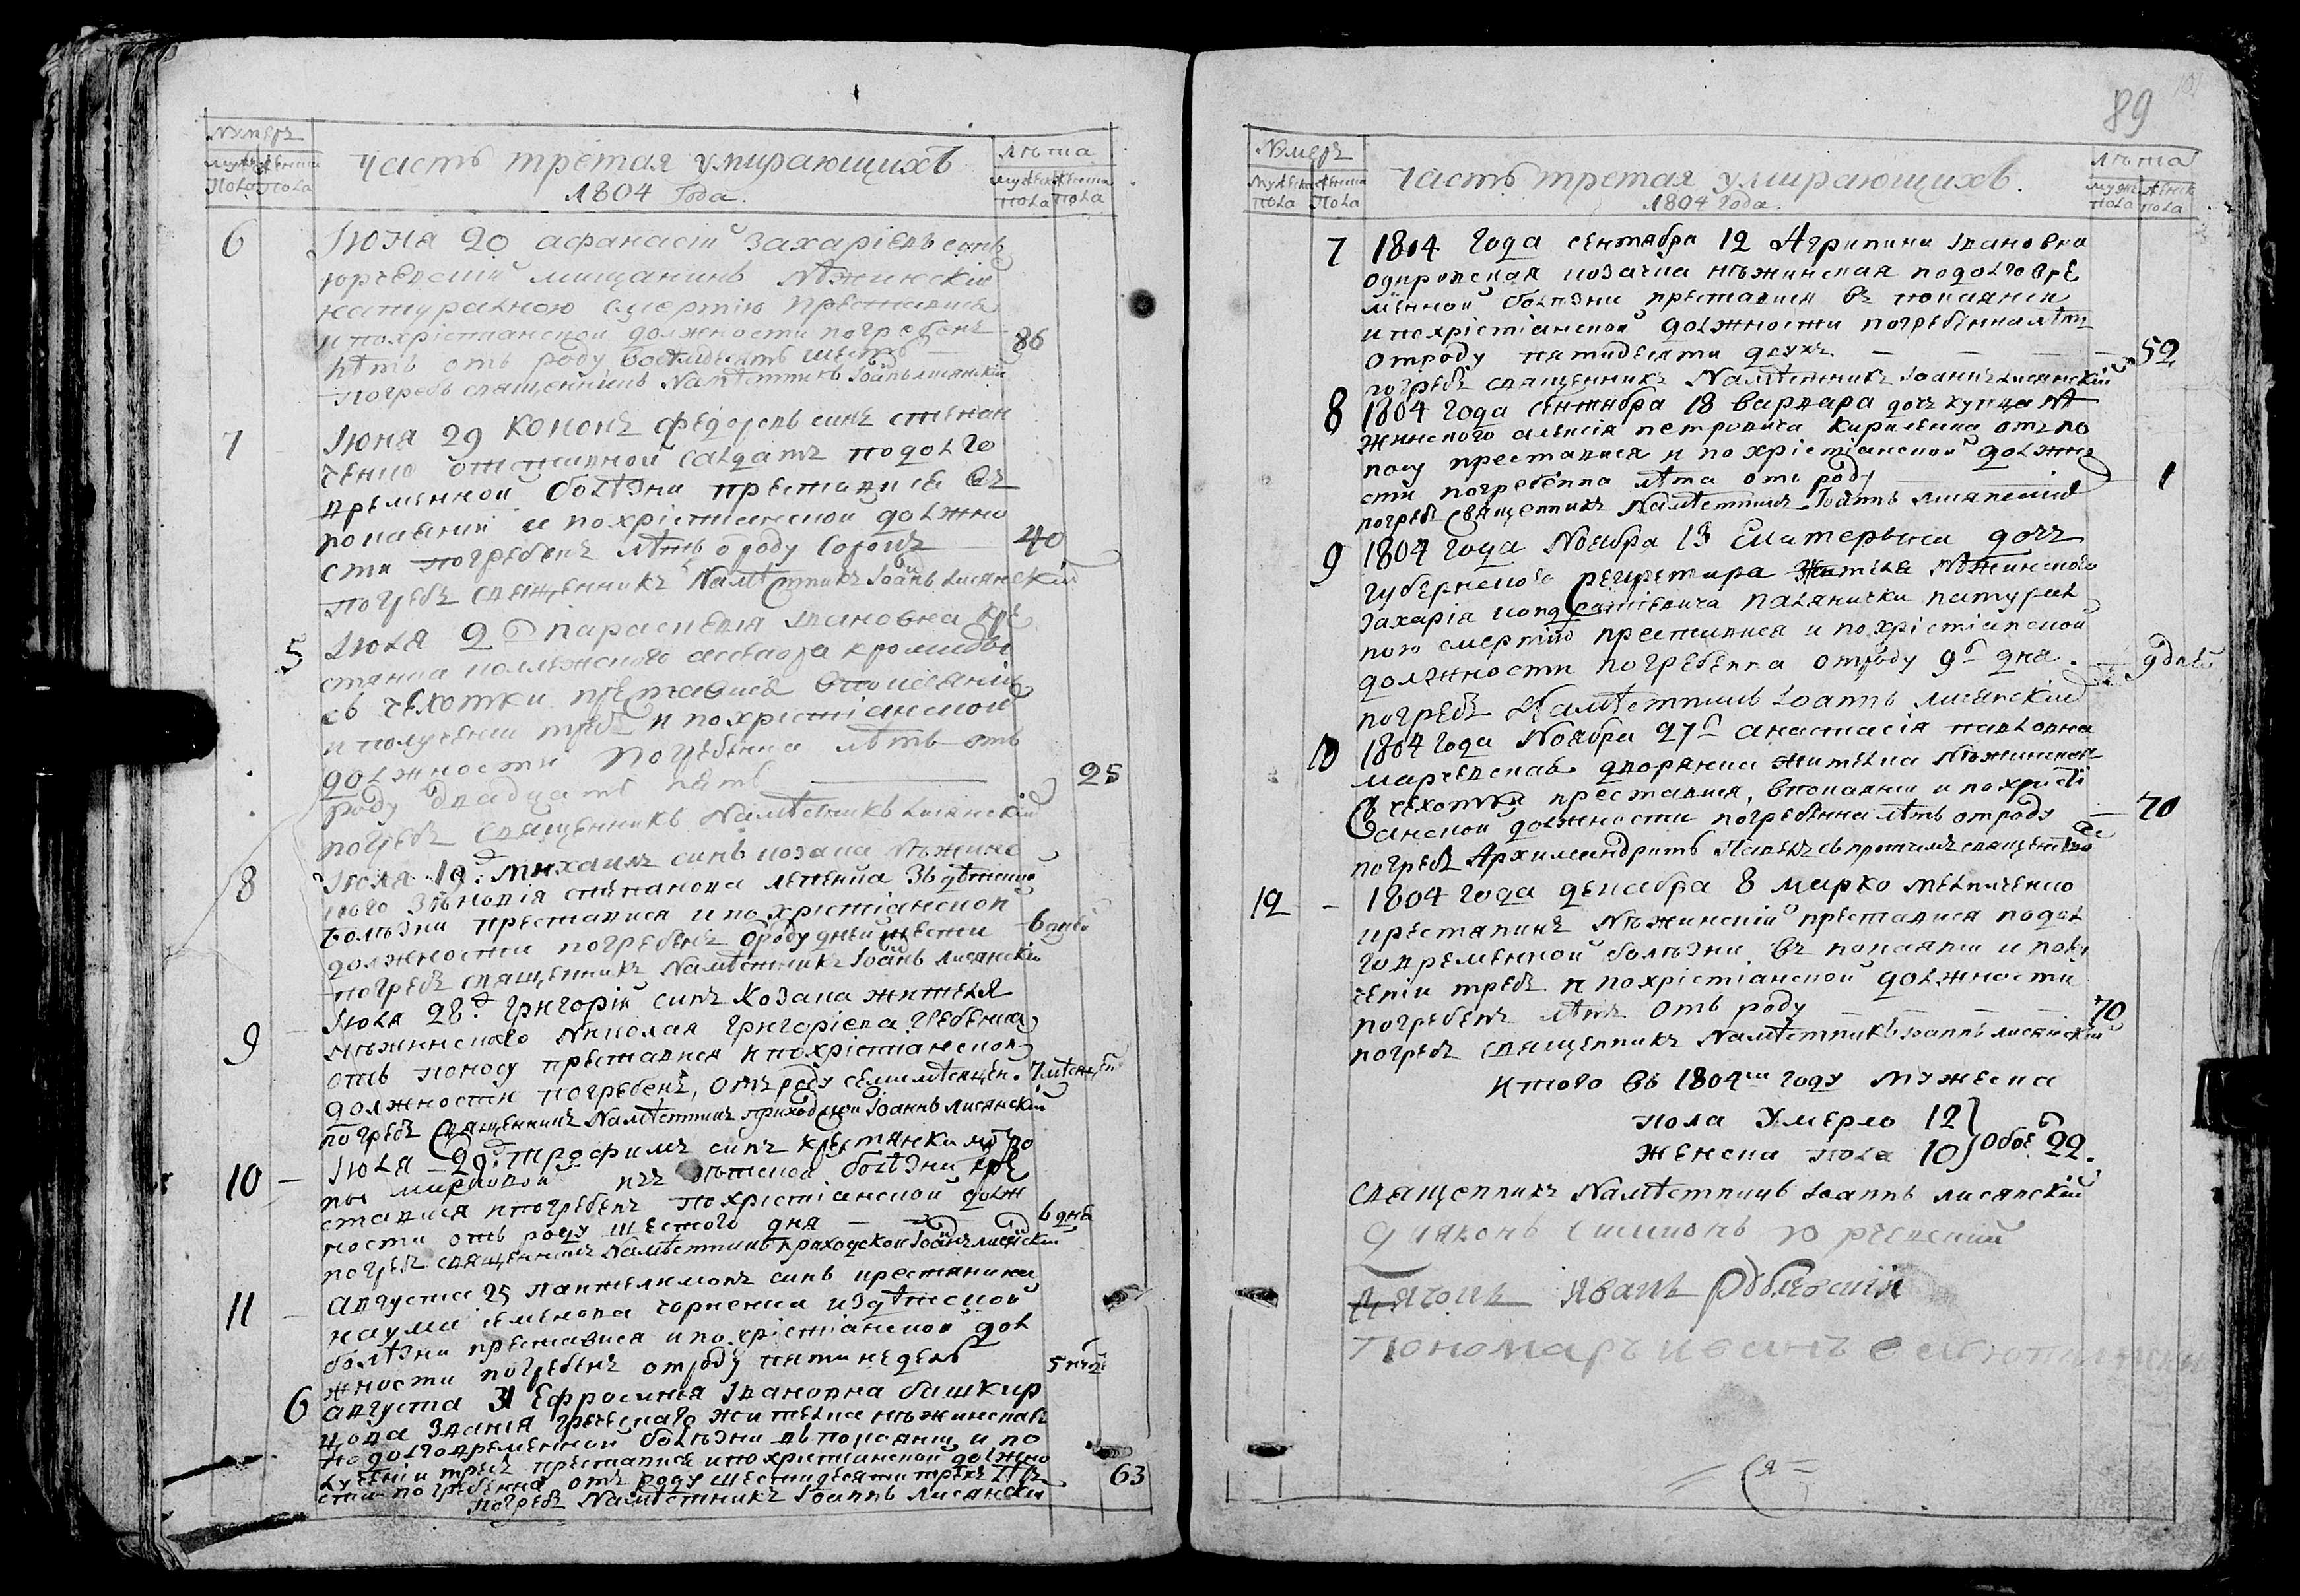 Нумеръ
Мужеска Женска
Пола Пола
Часть третая умирающихъ
1804 Года.
Лѣта
Мужеска Женска
пола пола
6 Июня 20 афанасій Захаріевъ синъ
юрчевскій мищанинъ Нѣжинскій
натуралною смертію преставися
и похрістианской должности погребенъ
лѣтъ отъ роду восемдесятъ шесть 86
погребъ священникъ Намѣстникъ Іоанъ лисянскій
7 Июня 29 Кононъ федоревъ синъ степан
ченко отставной салдатъ подолго
временной болѣзни преставися въ
покаянии и похрістианской должно
сти погребенъ лѣтъ о роду сорокъ 40
погребъ священникъ Намѣстникъ Іоанъ лисянскій
5 Июля 2 параскевія Ивановна кре
стянка колежского асесора
съ чехотки преставися впокаянии
и получении требъ и похрістианской
должности погребенна лѣтъ отъ
роду двадцать пять 25
погребъ священникъ Намѣстникъ лисянскій
8 Июля 19 Михаилъ синъ козака Нѣжинс
кого Зѣновія степанова лепенка Зъ дѣтской
болѣзни преставися и похрістіанской
должности погребенъ ороду дней шести 6 дней
погребъ священникъ Намѣстникъ Іоанъ лисянскій
9 Июля 28 Григорій синъ Козака жителя
Нѣжинского Николая Григоріева Гребенка
отъ поносу преставися и похрістианской
должности погребенъ, отъ роду семи мѣсяцей. 7 мѣсяцей
погребъ Священникъ Намѣстникъ приходской Іоаннъ лисянскій
10 Июля 29 трофимъ синъ крестянки
марковой изъ дѣтской болѣзни пре
ставися и погребенъ похрістіанской долж
ности отъ роду шестого дня 6 дне
погребъ священникъ Намѣстникъ приходской Іоанъ лисянскій
11 Августа 25 Пантелимонъ синъ крестянина
наума семенова чорненка издѣтской
болѣзни преставися и похрістіанской дол
жности погребенъ отроду пяти недель 5 нед
6 августа 31 Ефросинія Ивановна башкир
цова Званія греческаго жителка нѣжинская
по долговременной болѣзни въ покаянии и по
лучении требъ преставися и похрістианской должно
сти погребенна отъ роду шестидесяти трехъ лѣтъ 63
погребъ Намѣстникъ Іоаннъ лисянскій
89
Нумеръ
Мужеска Женска
пола Пола
Часть третая умирающихъ.
1804 года.
Лѣта
муже женск
пола пола
7 1804 года сентября 12 Агрипина Ивановна
козачка нѣжинская подолговре
менной болѣзни преставися въ покаянии
и похрістіанской должности погребенна лѣтъ
отроду пятидесяти двухъ 52
погребъ священникъ Намѣстникъ Іоаннъ лисянскій
8 1804 года сентября 18 варвара дочъ купца нѣ
жинского алексія петровича отъ по
носу преставися и по хрістіанской должно
сти погребенна лѣта отъ роду 1
погребъ священникъ Намѣстникъ Іоаннъ лисянскій
9 1804 года Ноября 13 Екатерына дочъ
Губернского регистратора Жителя Нѣжинского
Захарія натурал
ною смертію преставися и похрістіанской
должности погребенна отроду 9 дня. 9 дней
погребъ Намѣстникъ Іоаннъ лисянскій
10 1804 года Ноября 27 анастасія павловна
марчевская дворянка жителка Нѣжинская
Съ чехотки преставися, впокаянии и похристі
анской должности погребенна лѣтъ отроду 70
погребъ Архимандритъ Павелъ съ протчимъ священствомъ
12 1804 года декабря 8 марко
крестянинъ Нѣжинскій преставися подол
говременной болѣзни въ покаянии и полу
ченіи требъ и похрістіанской должности
погребенъ лѣтъ отъ роду 70
погребъ священникъ Намѣстникъ Іоаннъ лисянскій
Итого въ 1804м году мужеска
пола Умерло 12
Женска пола 10 Обое 22.
Священникъ Намѣстникъ Іоаннъ лисянскій
Диаконъ Симионъ юрчевский
Дячокъ Иванъ
Пономаръ иванъ